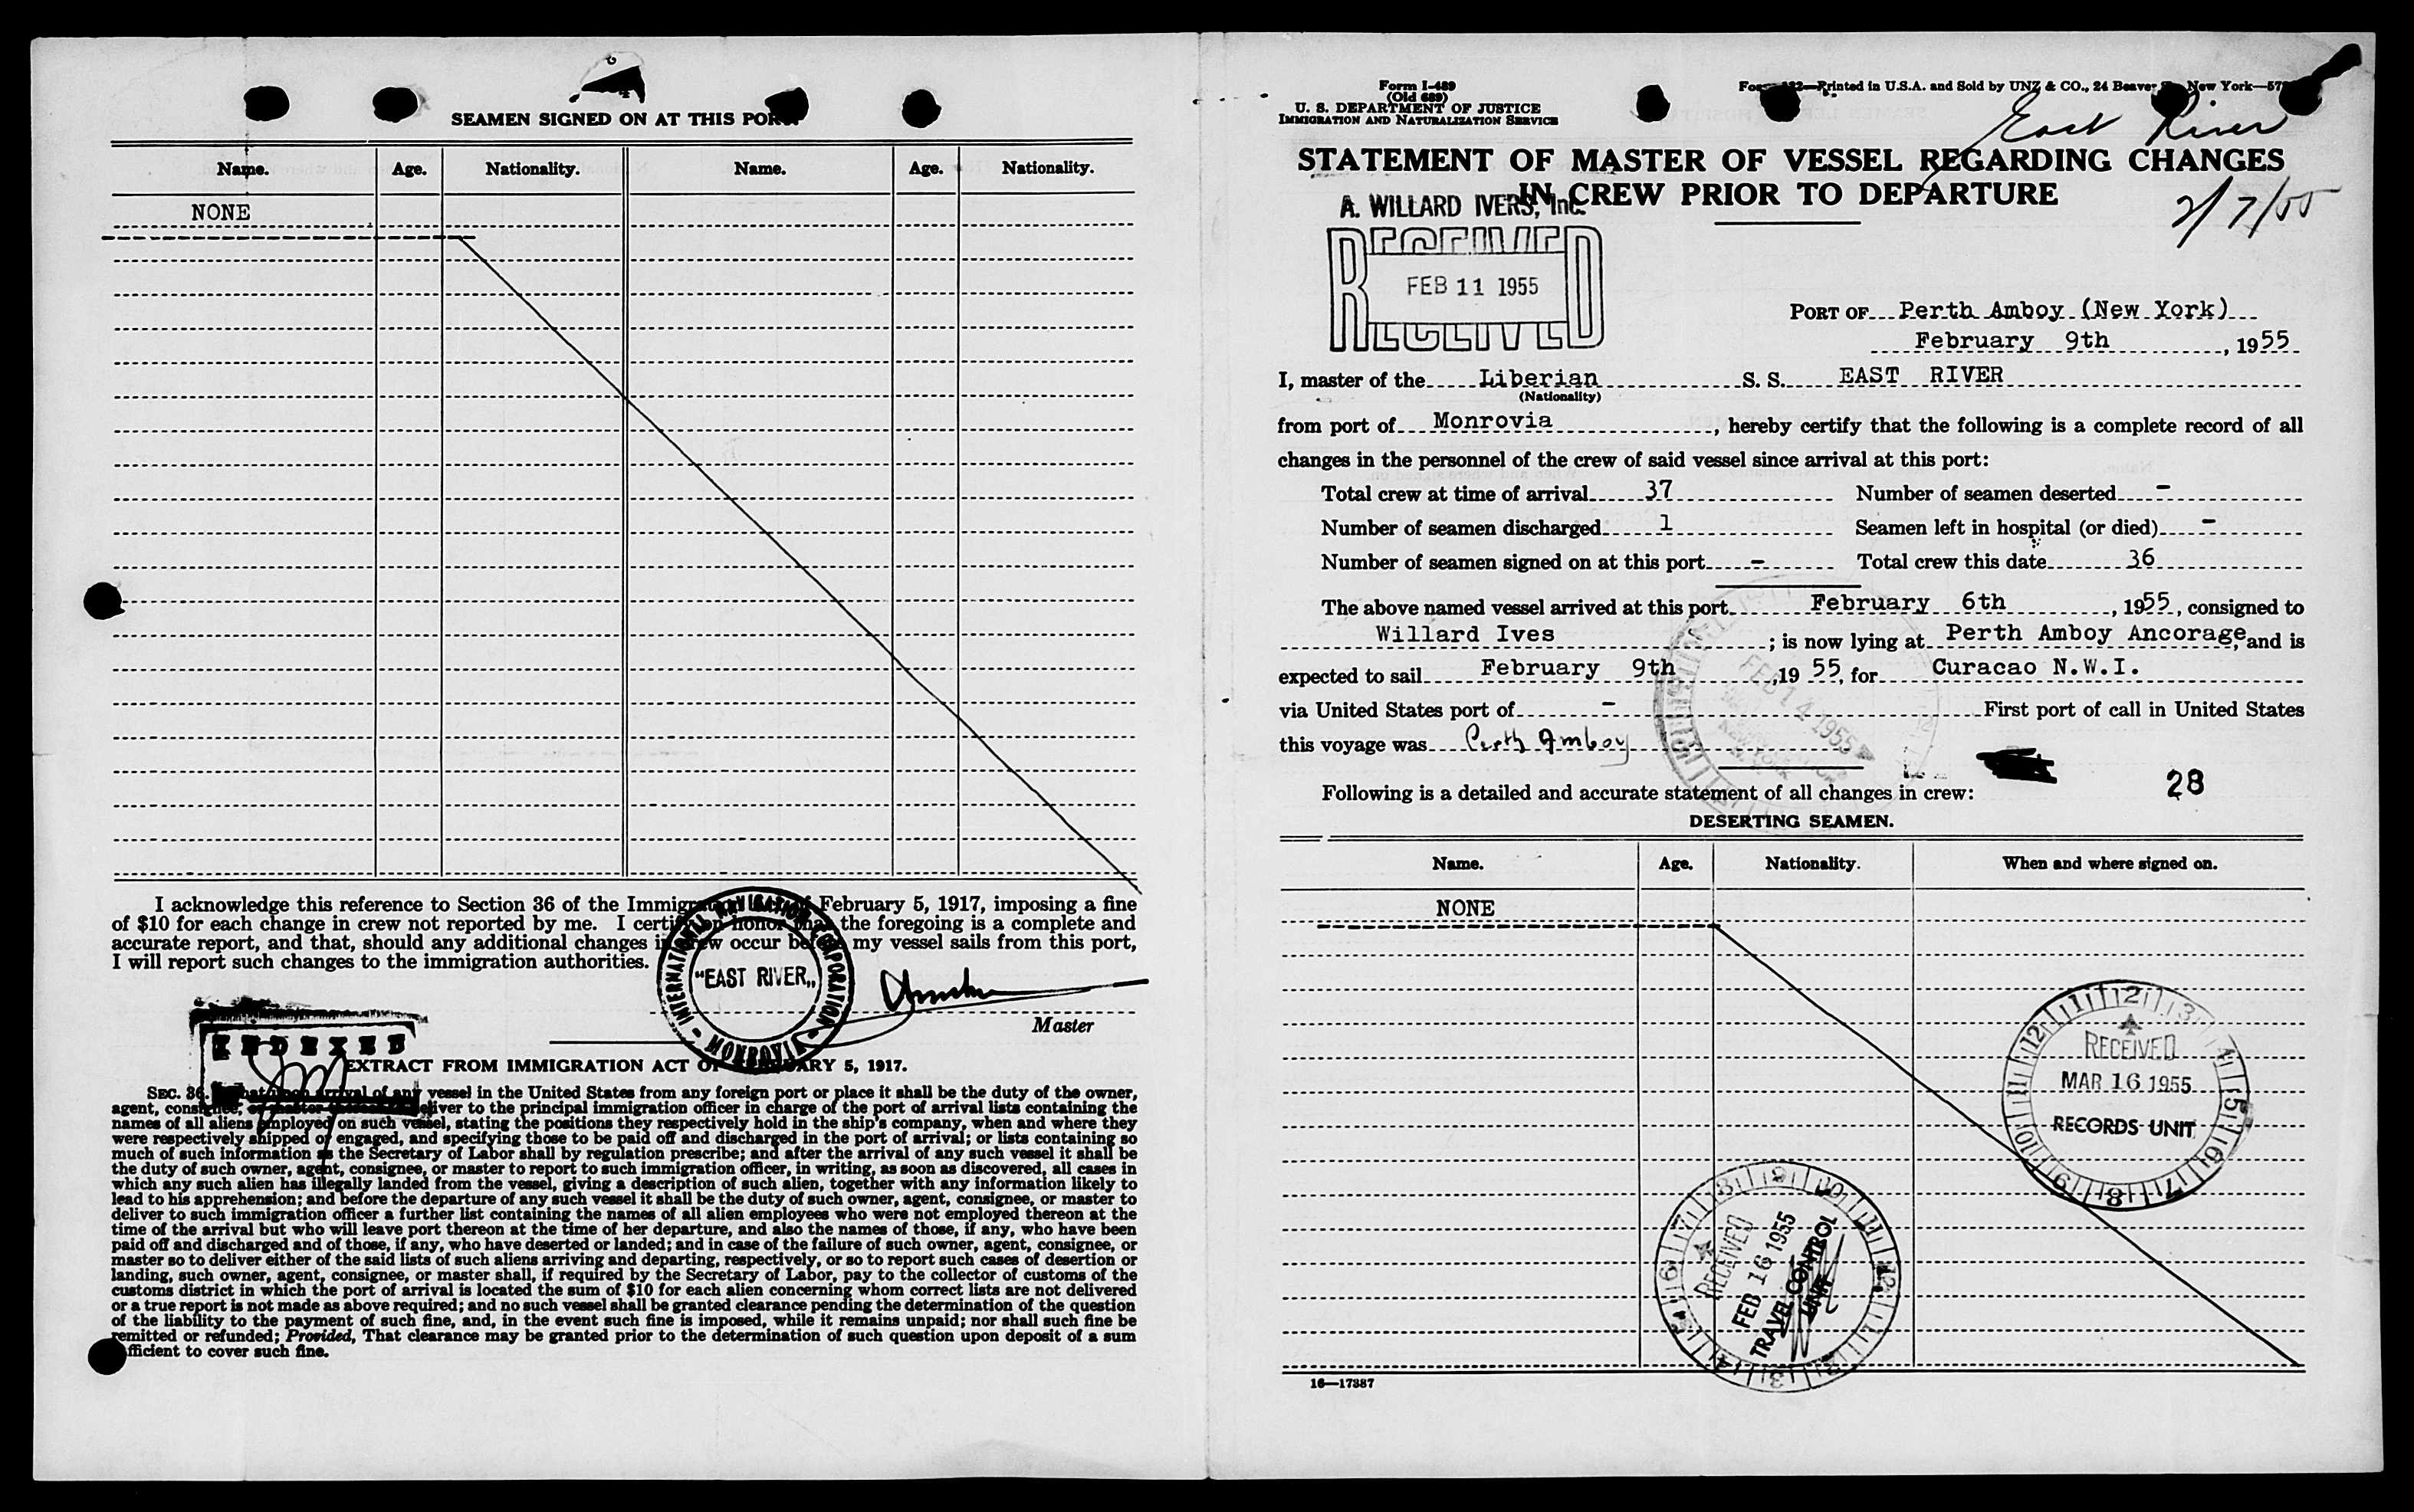 SEAMEN SIGNED ON AT THIS PORT.
Name. Age. Nationality. Name. Age. Nationality.
NONE
I acknowledge this reference to Section 36 of the Immigration February 5, 1917, imposing a fine
of $10 for each change in crew not reported by me. I certify on honor that the foregoing is a complete and
accurate report, and that, should any additional changes in crew occur before my vessel sails from this port,
I will report such changes to the immigration authorities.
INTERNATIONAL NAVIGATION CORPORATION - MONROVIA -
"EAST RIVER„
Master
INDEXED
EXTRACT FROM IMMIGRATION ACT OF FEBRUARY 5, 1917.
SEC. 36. That upon arrival of any vessel in the United States from any foreign port or place it shall be the duty of the owner,
agent, consignee, or master deliver to the principal immigration officer in charge of the port of arrival lists containing the
names of all aliens employed on such vessel, stating the positions they respectively hold in the ship's company, when and where they
were respectively shipped or engaged, and specifying those to be paid off and discharged in the port of arrival; or lists containing so
much of such information as the Secretary of Labor shall by regulation prescribe; and after the arrival of any such vessel it shall be
the duty of such owner, agent, consignee, or master to report to such immigration officer, in writing, as soon as discovered, all cases in
which any such alien has illegally landed from the vessel, giving a description of such alien, together with any information likely to
lead to his apprehension; and before the departure of any such vessel it shall be the duty of such owner, agent, consignee, or master to
deliver to such immigration officer a further list containing the names of all alien employees who were not employed thereon at the
time of the arrival but who will leave port thereon at the time of her departure, and also the names of those, if any, who have been
paid off and discharged and of those, if any, who have deserted or landed; and in case of the failure of such owner, agent, consignee, or
master so to deliver either of the said lists of such aliens arriving and departing, respectively, or so to report such cases of desertion or
landing, such owner, agent, consignee, or master shall, if required by the Secretary of Labor, pay to the collector of customs of the
customs district in which the port of arrival is located the sum of $10 for each alien concerning whom correct lists are not delivered
or a true report is not made as above required; and no such vessel shall be granted clearance pending the determination of the question
of the liability to the payment of such fine, and, in the event such fine is imposed, while it remains unpaid; nor shall such fine be
remitted or refunded; Provided, That clearance may be granted prior to the determination of such question upon deposit of a sum
sufficient to cover such fine.
Form I-489
(Old 689)
U. S. DEPARTMENT OF JUSTICE
IMMIGRATION AND NATURALIZATION SERVICE
Printed in U.S.A. and Sold by UNZ & CO., 24 Beaver New York
East River
STATEMENT OF MASTER OF VESSEL REGARDING CHANGES
IN CREW PRIOR TO DEPARTURE
2/7/55
A. WILLARD IVERS, Inc.
RECEIVED
FEB 11 1955
RECEIVED
PORT OF Perth Amboy (New York)
February 9th, 1955
I, master of the Liberian S. S. EAST RIVER
(Nationality)
from port of Monrovia, hereby certify that the following is a complete record of all
changes in the personnel of the crew of said vessel since arrival at this port:
Total crew at time of arrival 37 Number of seamen deserted -
Number of seamen discharged 1 Seamen left in hospital (or died) -
Number of seamen signed on at this port - Total crew this date 36
The above named vessel arrived at this port February 6th, 1955, consigned to
Willard Ives; is now lying at Perth Amboy Ancorage, and is
expected to sail February 9th, 19 55, for Curacao N.W.I.
via United States port of - First port of call in United States
this voyage was Perth Amboy
FEB 14 1955
28
Following is a detailed and accurate statement of all changes in crew:
DESERTING SEAMEN.
Name. Age. Nationality. When and where signed on.
NONE
RECEIVED
MAR 16 1955
RECORDS UNIT
RECEIVED
FEB 16 1955
TRAVEL CONTROL
UNIT
16—17387